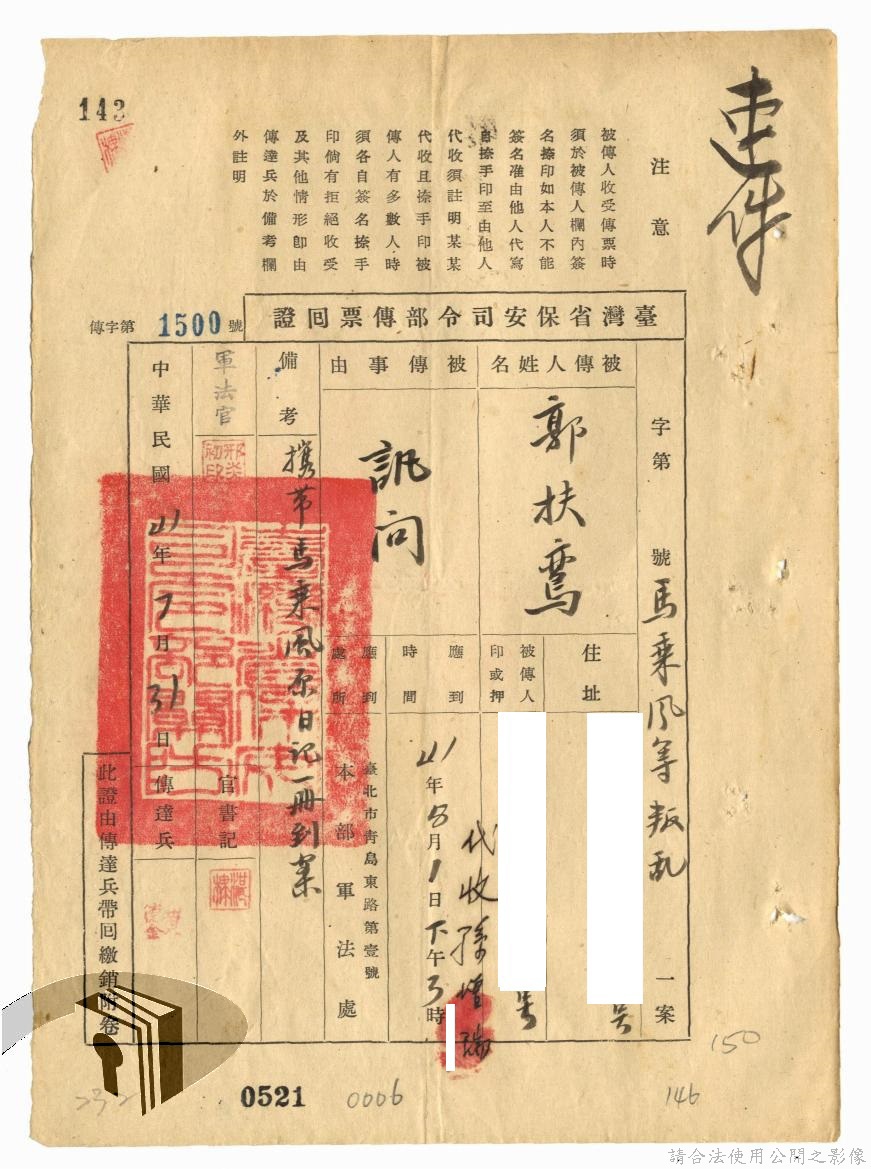 143
速件
注意
被傳人收受傳票時
須於被傳人欄內簽
名捺印如本人不能
簽名准由他人代寫
自捺手印至由他人
代收須註明某某
代收且捺手印被
傳人有多數人時
須各自簽名捺手
印倘有拒絕收受
及其他情形卽由
傳達兵於備考欄
外註明
臺灣省保安司令部傳票回證
傳字第1500號
字第 號馬乘風等叛乱一案
被傳人姓名
郭扶鸞
住址
被傳人
印或押
代收孫
被傳事由
訊问
應到時間
41年8月1日下午3時
應到處所
臺北市青島東路第壹號
本部軍法處
備考
携带馬乘風原日記一冊到案
軍法官
邢炎初印
書記官
中華民國41年7月31日
傳達兵
此證由傳達兵帶回繳銷附卷
150
146
0006
0521
請合法使用公開之影像